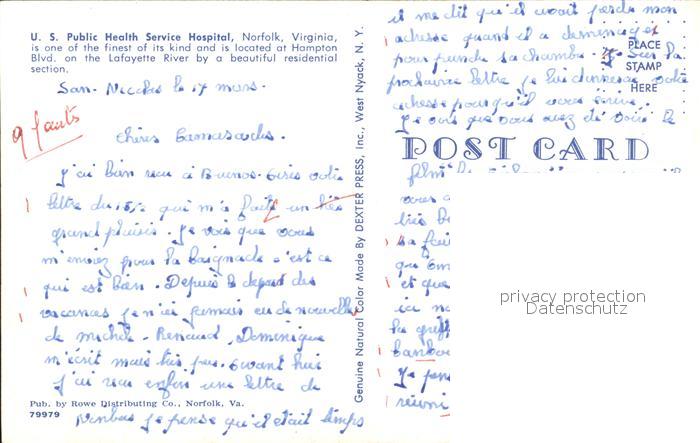 U. S. Public Health Service Hospital, Norfolk, Virginia,
is one of the finest of its kind and is located at Hampton
Blvd. on the Lafayette River by a beautiful residential
section.
San. Nicolas le 17 mars.
9 fauts
chères Camarades.
j'ai bien recu à Buenos-Aires votre
lettre du 15, qui m'a faite un très
grand plaisir. Je vois que vous
m'enviez pour la baignade c'est ce
qui est bien. Depuis le depart des
vacances je n'ai jamais eu de nouvelles
de michel. Renaud, Dominique
m'écrit mais très peu. avant hier
j'ai recu enfin une lettre de
je pense qu'il etait temps
Pub. by Rowe Distributing Co., Norfolk, Va.
79979
Genuine Natural Color Made By DEXTER PRESS, Inc., West Nyack, N. Y.
il me dit qu'il avait perdu mon
adresse quand il a demenagé
pour prendre sa chambre. Sur la
prochaine lettre je lui donnerai votre
adresse pour qu'il vous écrive.
Je vois que vous avez été voir
PLACE
STAMP
HERE
POST CARD
film
vous a
très b
sa fai
qu
et que
ici no
la griff
bambo
Je pen
réuni
privacy protection
Datenschutz